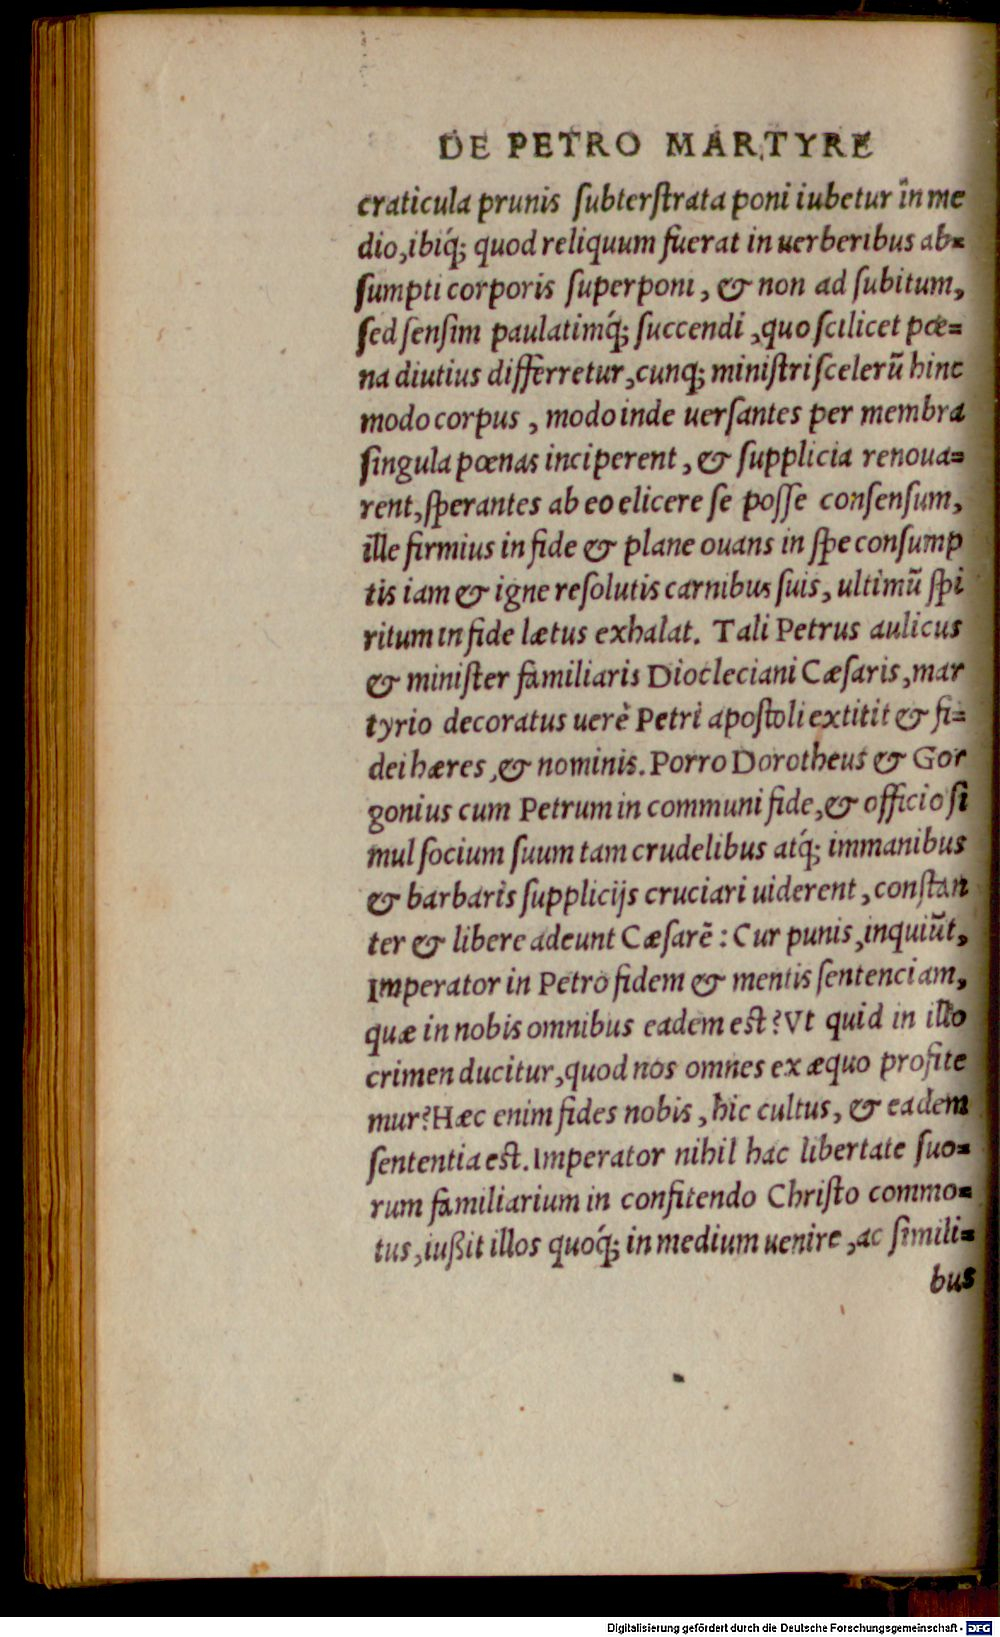 DE PETRO MARTYRE
craticula prunis ſubterſtrata poni iubetur in me
dio,ibiq́; quod reliquum fuerat in uerberibus ab=
ſumpti corporis ſuperponi, & non ad ſubitum,
ſed ſenſim paulatimq́; ſuccendi, quo ſcilicet pœ=
na diutius differretur,cunq; miniſtri ſcelerū hinc
modo corpus, modo inde uerſantes per membra
ſingula pœnas inciperent, & ſupplicia renoua=
rent,ſperantes ab eo elicere ſe poſſe conſenſum,
ille firmius in fide & plane ouans in ſpe conſump
tis iam & igne reſolutis carnibus ſuis, ultimū ſpi
ritum in fide lætus exhalat. Tali Petrus aulicus
& miniſter familiaris Diocleciani Cæſaris,mar
tyrio decoratus uerè Petri apoſtoli extitit & fi=
dei hæres,& nominis. Porro Dorotheus & Gor
gonius cum Petrum in communi fide,& officio ſi
mul ſocium ſuum tam crudelibus atq́; immanibus
& barbaris ſupplicijs cruciari uiderent, conſtan
ter & libere adeunt Cæſarē: Cur punis,inquiūt,
Imperator in Petro fidem & mentis ſentenciam,
quæ in nobis omnibus eadem eſt? Vt quid in illo
crimen ducitur,quod nos omnes ex æquo profite
mur? Hæc enim fides nobis, hic cultus, & eadem
ſententia eſt. Imperator nihil hac libertate ſuo=
rum familiarium in confitendo Chriſto commo=
tus,iußit illos quoq́; in medium uenire,ac ſimili=
bus
Digitalisierung gefördert durch die Deutsche Forschungsgemeinschaft - DFG